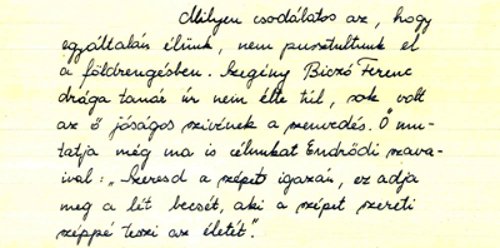 Milyen csodálatos az, hogy
egyáltalán élünk, nem pusztultunk el
a földrengésben. Szegény Biczó Ferenc
drága tanár úr nem élte túl, sok volt
az ő jóságos szivének a szenvedés. Ő mu-
tatja még ma is célunkat Endrődi szava-
ival: „Szeresd a szépet igazán, ez adja
meg a lét becsét, aki a szépet szereti
széppé teszi az életét".